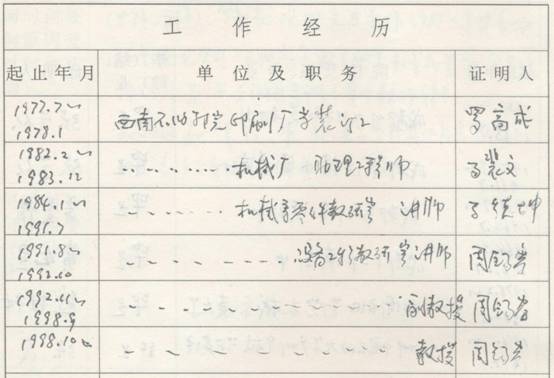 工作经历
起止年月 单位及职务 证明人
1977.7~
1978.1 西南石油学院印刷厂学装订工 罗高成
1982.2~
1983.12 机械厂 助理工程师 文
1984.1~
1991.7 机械系零件教研室 讲师 坤
1991.8~
1992.10 设备工程教研室讲师 周锡容
1992.11~
1998.9 副教授 周锡容
1998.10~ 教授 周锡容